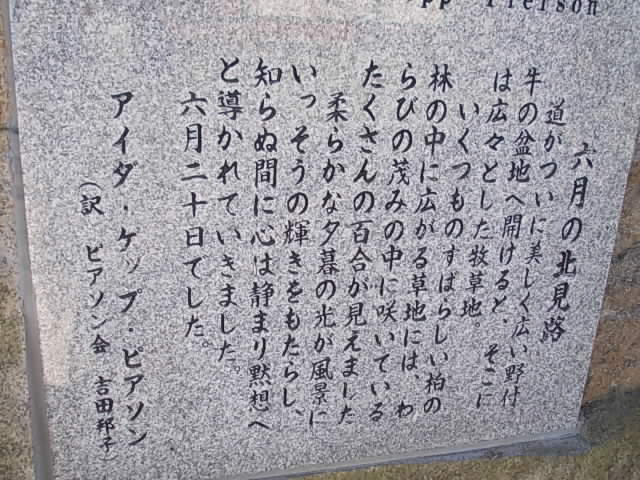 pp Pierson
六月の北見路
道がついに美しく広い野付
牛の盆地へ開けると、そこに
は広々とした牧草地。
いくつものすばらしい柏の
林の中に広がる草地には、わ
らびの茂みの中に咲いている
たくさんの百合が見えました
柔らかな夕暮の光が風景に
いっそうの輝きをもたらし、
知らぬ間に心は静まり黙想へ
と導かれていきました。
六月二十日でした。
アイダ・ケップ・ピアソン
（訳 ピアソン会 吉田邦子）